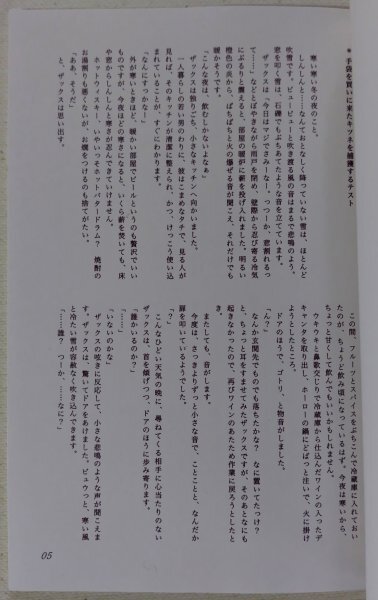 * 手袋を買いに来たキツネを捕獲するテスト
寒い寒い冬の夜のこと。
しんしんと……なんておとなしく降っていない雪は、ほとんど
吹雪です。ビュービューと吹き渡る風の音はまるで悲鳴のよう。
窓を叩く雪は、石礫でもぶちあてたような音を立てています。
ザックスは「今日はまたひでさみーなー」つーか、窓割れるっ
て……」などとぼやきながら雨戸を閉め、壁際から忍び寄る冷気
にぶるりと震えると、部屋の暖炉に薪を投げ入れました。明るい
橙色の炎から、ぱちぱちと火の爆ぜる音が聞こえ、それだけでも
暖かそうです。
「こんな夜は、飲むしかないよなぁ」
ザックスは独りごち、小さなキッチンへ向かいました。
一人暮らしの若い男のわりに、彼はこまめなタチで、見る人が
見れば、そのキッチンが清潔に整えられ、かつ、けっこう使い込
まれていることが、すぐにわかります。
「なんにすっかなー」
外が寒いときほど、暖かい部屋でビールというのも贅沢でいい
ものですが、今夜ほどの寒さになると、いくら薪を焚いても、床
や窓からしんしんと寒さが忍んできていけません。
ホットウィスキー、いやいっそホットバタードラム？　焼酎の
お湯割りも悪くないが、お燗をつけるのも捨てがたい。
「ああ、そうだ」
と、ザックスは思い出す。
この間、フルーツとスパイスをぶちこんで冷蔵庫に入れておい
たのが、ちょうど飲み頃になっているはず。今夜は寒いから、
ちょっと甘くして飲んでもいいかもしれません。
ウキウキと鼻歌交じりで冷蔵庫から仕込んだワインの入ったデ
キャンタを取り出し、ホーローの鍋にどばっと注いで、火に掛け
ようとしたところ、
ドアのほうで、ゴトリ、と物音がしました。
「ん？」
なんか玄関先でものでも落ちたかな？　なに置いてたっけ？
と、ちょっと耳をすませてみたザックスですが、そのあとなにも
起きなかったので、再びワインのあたため作業に戻ろうとしたと
き。
またしても、音がします。
今度は、さっきよりずっと小さな音で、ことこと、なんだか
扉を叩いているようでした。
こんなひどい天気の晩に、尋ねてくる相手に心当たりのない
ザックスは、首を傾げつつ、ドアのほうに歩み寄ります。
「誰かいるのか？」
「……」
「いないのかな」
ザックスの呟きに反応して、小さな悲鳴のような声が聞こえま
す。ザックスは、驚いてドアをあけました。ビュウっと、寒い風
と冷たい雪が容赦なく吹き込んできます。
「……誰？　つーか、……なに？」
05